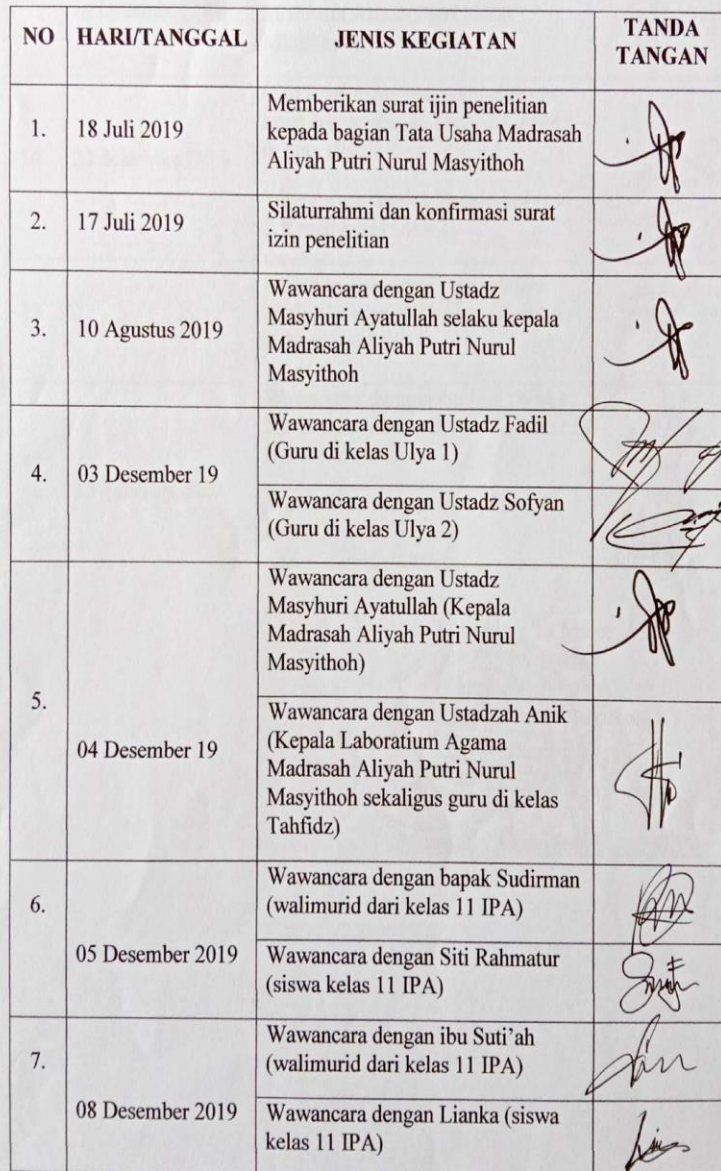 NO HARI/TANGGAL JENIS KEGIATAN TANDA
TANGAN
1. 18 Juli 2019 Memberikan surat ijin penelitian
kepada bagian Tata Usaha Madrasah
Aliyah Putri Nurul Masyithoh
2. 17 Juli 2019 Silaturrahmi dan konfirmasi surat
izin penelitian
3. 10 Agustus 2019 Wawancara dengan Ustadz
Masyhuri Ayatullah selaku kepala
Madrasah Aliyah Putri Nurul
Masyithoh
4. 03 Desember 19 Wawancara dengan Ustadz Fadil
(Guru di kelas Ulya 1)
Wawancara dengan Ustadz Sofyan
(Guru di kelas Ulya 2)
5. 04 Desember 19 Wawancara dengan Ustadz
Masyhuri Ayatullah (Kepala
Madrasah Aliyah Putri Nurul
Masyithoh)
Wawancara dengan Ustadzah Anik
(Kepala Laboratium Agama
Madrasah Aliyah Putri Nurul
Masyithoh sekaligus guru di kelas
Tahfidz)
6. 05 Desember 2019 Wawancara dengan bapak Sudirman
(walimurid dari kelas 11 IPA)
Wawancara dengan Siti Rahmatur
(siswa kelas 11 IPA)
7. 08 Desember 2019 Wawancara dengan ibu Suti’ah
(walimurid dari kelas 11 IPA)
Wawancara dengan Lianka (siswa
kelas 11 IPA)